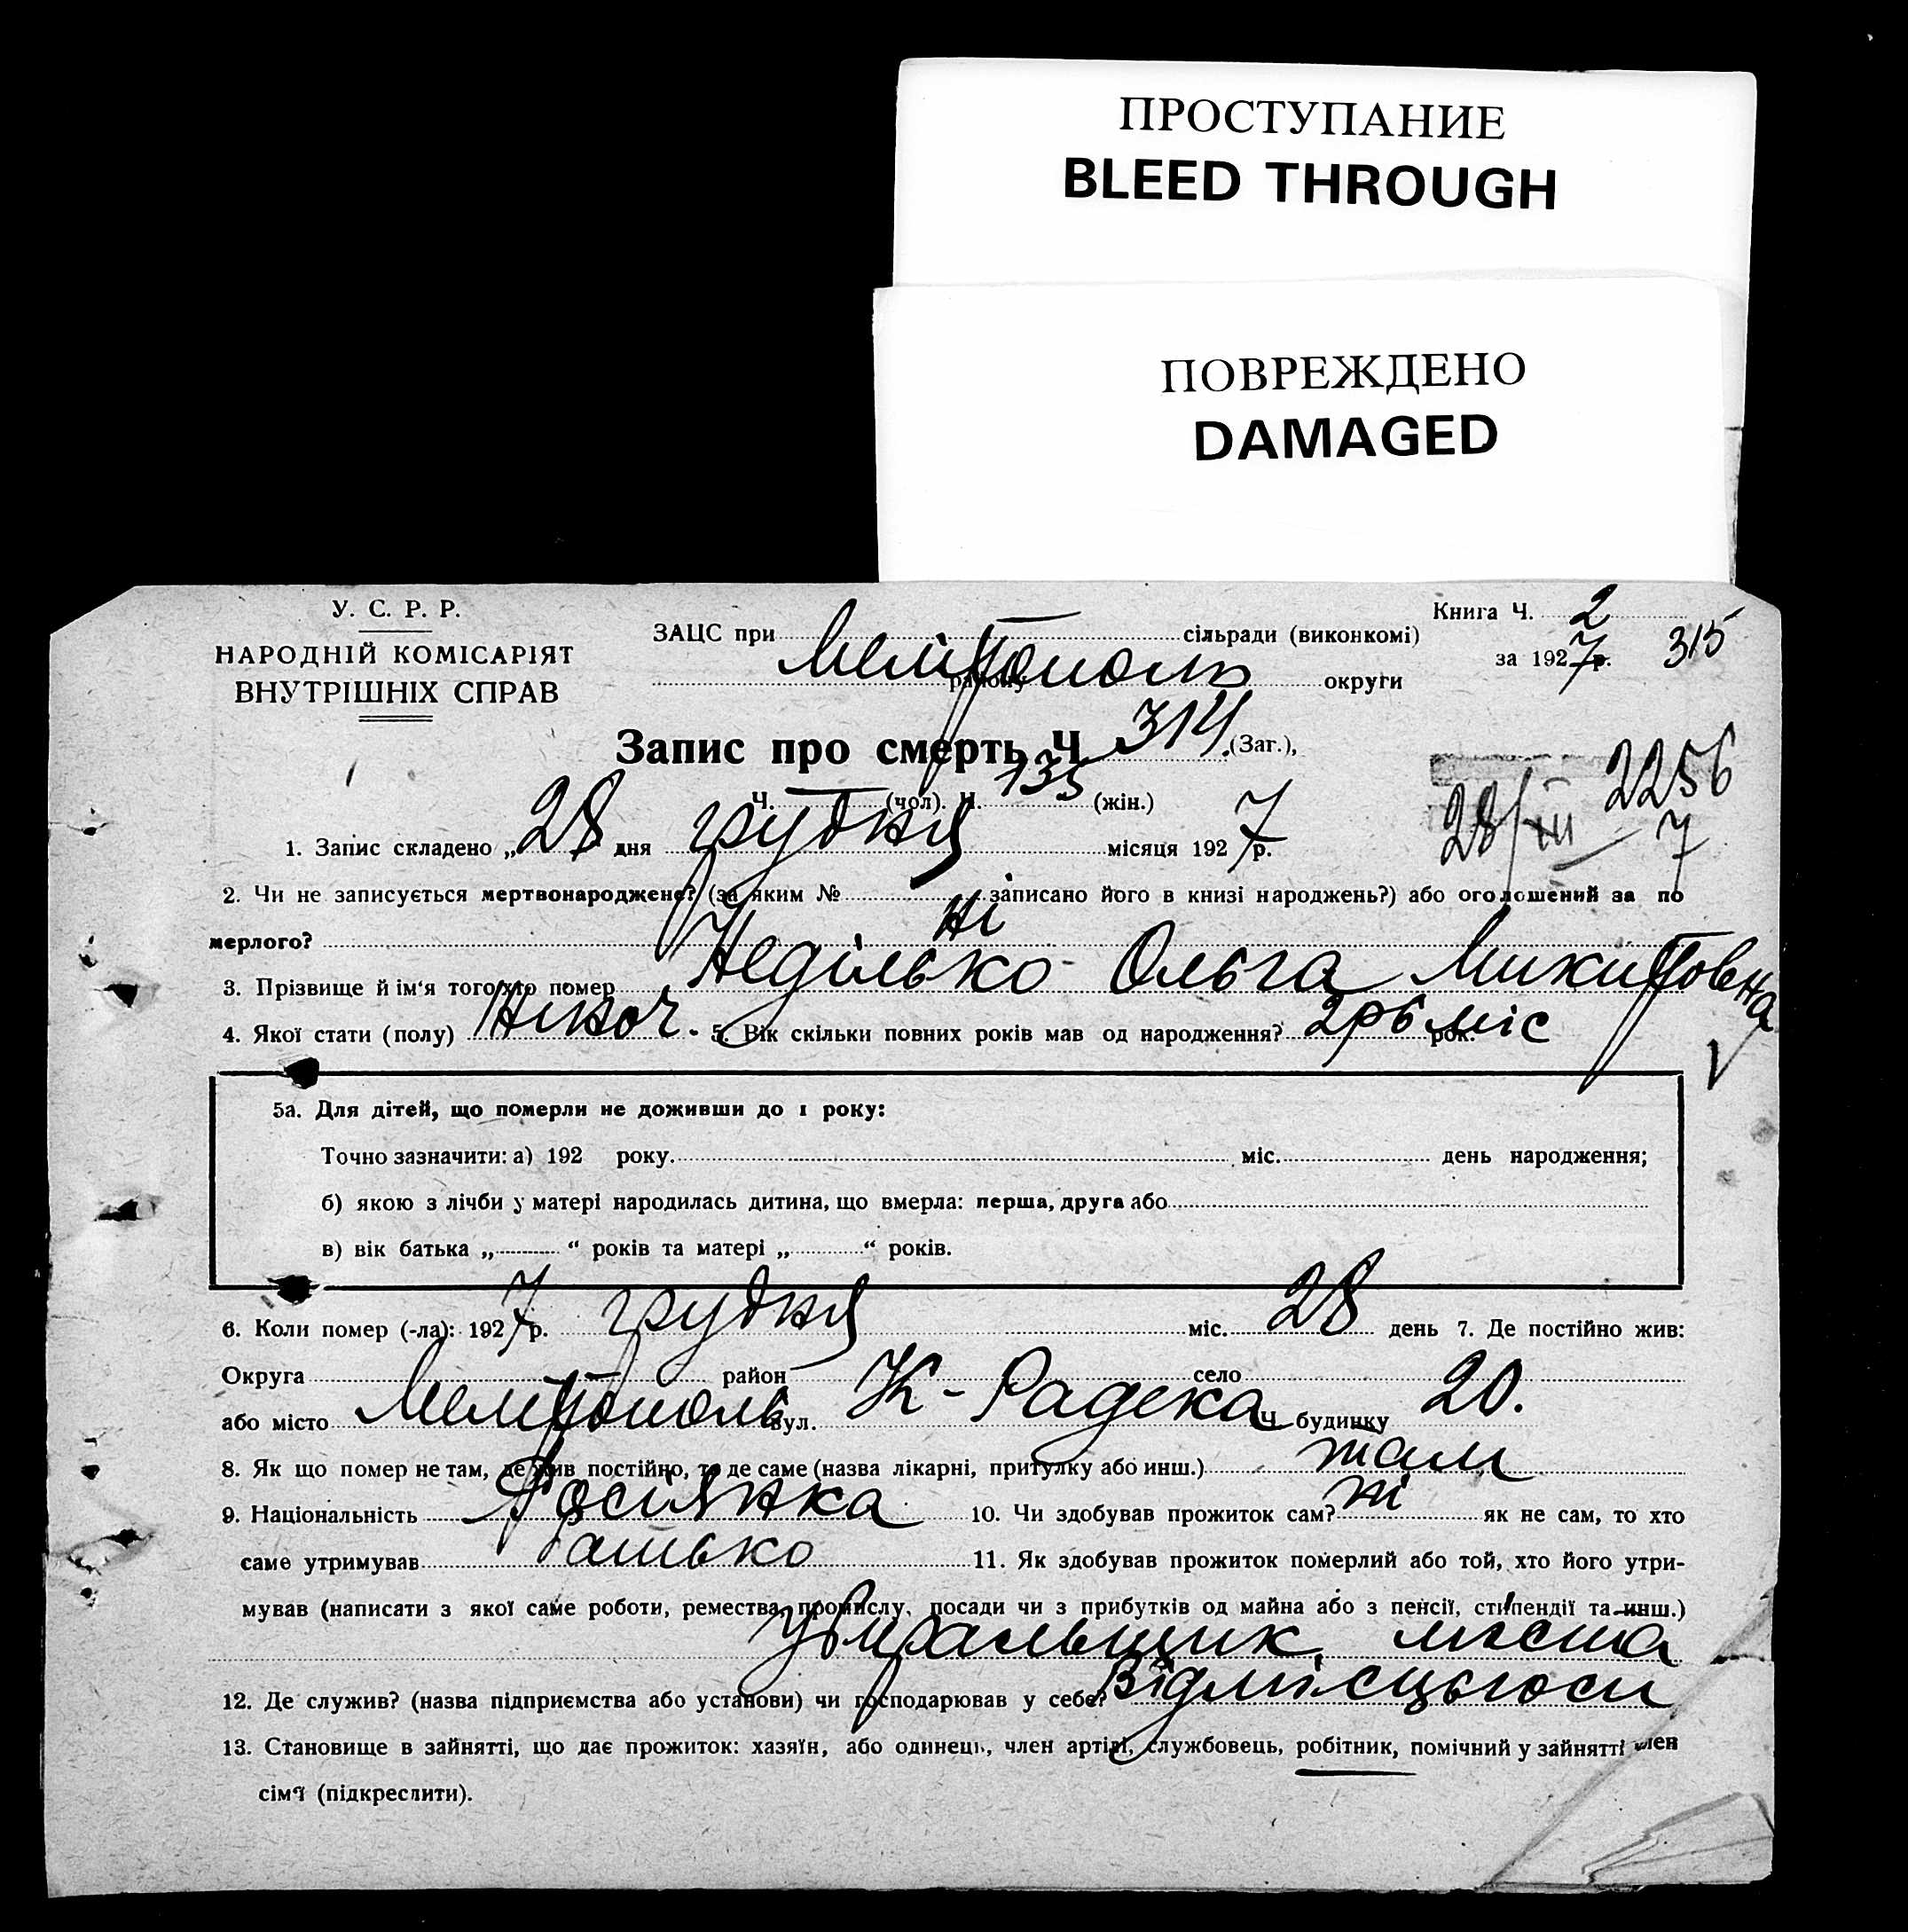 ПРОСТУПАНИЕ
BLEED THROUGH
ПОВРЕЖДЕНО
DAMAGED
У. С. Р. Р.
НАРОДНІЙ КОМІСАРІЯТ
ВНУТРІШНІХ СПРАВ
Книга Ч. 2
за 1927 р. 315
ЗАЦС при Мелітополь сільради (виконкомі)
району округи
Запис про смерть Ч 314 (Заг.),
Ч. (чол). Ч. 135 (жін.)
2256
28/XII — 7
1. Запис складено „28 дня грудня місяця 1927 р.
2. Чи не записується мертвонароджене? (за яким № записано його в книзі народжень?) або оголошений за по
мерлого? ні
3. Прізвище й ім'я того хто помер Неділько Ольга Микитовна
4. Якої стати (полу) жіноч. 5. Вік скільки повних років мав од народження? 2 р 6 міс рок.
5а. Для дітей, що померли не доживши до 1 року:
Точно зазначити: а) 192 року. міс. день народження;
б) якою з лічби у матері народилась дитина, що вмерла: перша, друга або
в) вік батька „ “ років та матері „ “ років.
6. Коли помер (-ла): 1927 р. грудня міс. 28 день 7. Де постійно жив:
Округа район село
або місто Мелітополь вул. К-Радека Ч. будинку 20.
8. Як що помер не там, де жив постійно, то де саме (назва лікарні, притулку або инш.) там
9. Національність Росіянка 10. Чи здобував прожиток сам? ні як не сам, то хто
саме утримував батько 11. Як здобував прожиток померлий або той, хто його утри-
мував (написати з якої саме роботи, ремества, промислу, посади чи з прибутків од майна або з пенсії, стіпендії та инш.)
убиральщик міста
12. Де служив? (назва підприємства або установи) чи господарював у себе? Відмісцьгосп
13. Становище в зайнятті, що дає прожиток: хазяїн, або одинець, член артілі, службовець, робітник, помічний у зайнятті член
сім'ї (підкреслити).